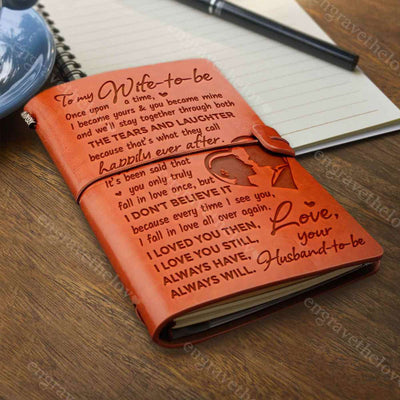 To my Wife-to-be
Once upon a time,
I became yours & you became mine
and we'll stay together through both
THE TEARS AND LAUGHTER
because that's what they call
happily ever after.
It's been said that
you only truly
fall in love once, but
I DON'T BELIEVE IT
because every time I see you,
I fall in love all over again,
I LOVED YOU THEN,
I LOVE YOU STILL,
ALWAYS HAVE,
ALWAYS WILL.
Love,
your
Husband-to-be
engravethelove